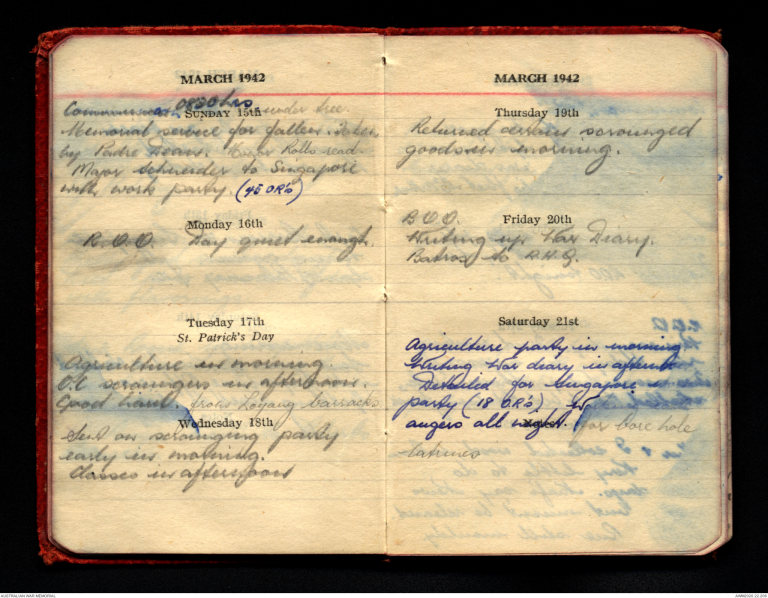 MARCH 1942
Communion 0830 hrs under tree.
SUNDAY 15th
Memorial service for fallen. Taken
by Padre Dean. Major Rolls read
Major Schneider to Singapore
with work party. (45 OR's)
Monday 16th
R.O.O. Day quiet enough.
Tuesday 17th
St. Patrick's Day
Agriculture in morning.
O.C. scroungers in afternoon.
Good haul. from Loyang barracks
Wednesday 18th
Sent on scrounging party
early in morning.
Classes in afternoon
MARCH 1942
Thursday 19th
Returned certain scrounged
goods in morning.
B.O.O. Friday 20th
Writing up War Diary.
to R.H.Q.
Saturday 21st
Agriculture party in morning
Writing War diary in aftern
Detailed for Singapore
party (18 O.R.'s)
augers all night. for bore hole
latrines
AUSTRALIAN WAR MEMORIAL